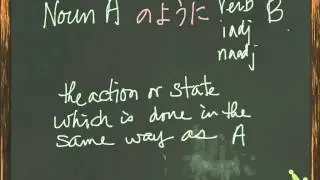 Noun A のように verb B
i adj
na adj
the action or state
which is done in the
same way as A